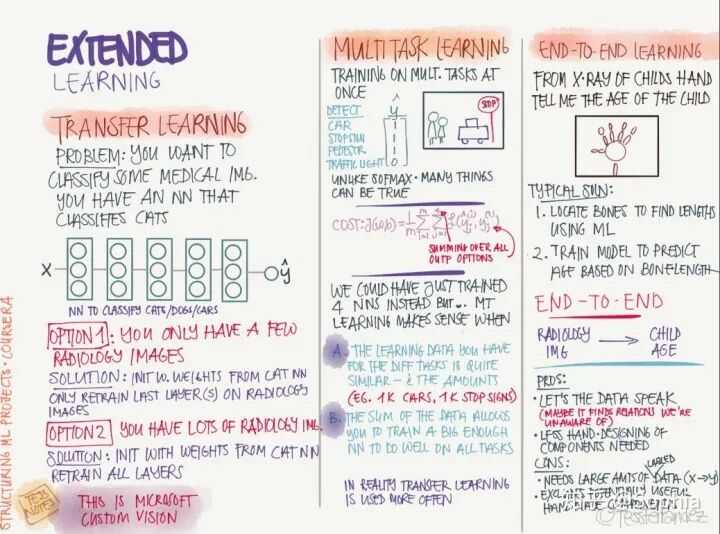 EXTENDED
LEARNING
TRANSFER LEARNING
PROBLEM: YOU WANT TO
CLASSIFY SOME MEDICAL IMG.
YOU HAVE AN NN THAT
CLASSIFIES CATS
X
ŷ
NN TO CLASSIFY CATS/DOGS/CARS
OPTION 1: YOU ONLY HAVE A FEW
RADIOLOGY IMAGES
SOLUTION: INIT W. WEIGHTS FROM CAT NN
ONLY RETRAIN LAST LAYER(S) ON RADIOLOGY
IMAGES
OPTION 2 YOU HAVE LOTS OF RADIOLOGY IMG.
SOLUTION: INIT WITH WEIGHTS FROM CAT NN
RETRAIN ALL LAYERS
TESS
NOTE:
THIS IS MICROSOFT
CUSTOM VISION
STRUCTURING ML PROJECTS · COURSERA
MULTI TASK LEARNING
TRAINING ON MULT. TASKS AT
ONCE
DETECT ŷ
CAR 1
STOPSIGN 1
PEDESTR. 1
TRAFFIC LIGHT 0
STOP
UNLIKE SOFMAX · MANY THINGS
CAN BE TRUE
COST: J(w,b) = 1/m
SUMMING OVER ALL
OUTP OPTIONS
WE COULD HAVE JUST TRAINED
4 NNS INSTEAD BUT... MT
LEARNING MAKES SENSE WHEN
A. THE LEARNING DATA YOU HAVE
FOR THE DIFF TASKS IS QUITE
SIMILAR - & THE AMOUNTS
(EG. 1K CARS, 1K STOP SIGNS)
B. THE SUM OF THE DATA ALLOWS
YOU TO TRAIN A BIG ENOUGH
NN TO DO WELL ON ALL TASKS
IN REALITY TRANSFER LEARNING
IS USED MORE OFTEN
END-TO-END LEARNING
FROM X-RAY OF CHILDS HAND
TELL ME THE AGE OF THE CHILD
TYPICAL SOLN:
1. LOCATE BONES TO FIND LENGTHS
USING ML
2. TRAIN MODEL TO PREDICT
AGE BASED ON BONELENGTH
END-TO-END
RADIOLOGY → CHILD
IMG AGE
PROS:
· LET'S THE DATA SPEAK
(MAYBE IT FINDS RELATIONS WE'RE
UNAWARE OF)
· LESS HAND-DESIGNING OF
COMPONENTS NEEDED
CONS:
LABLED
· NEEDS LARGE AMTS OF DATA (X→Y)
· EXCLUDES POTENTIALLY USEFUL